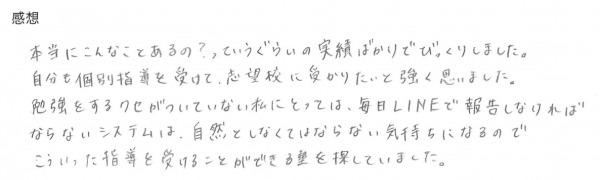 感想
本当にこんなことあるの？、っていうぐらいの実績ばかりでびっくりしました。
自分も個別指導を受けて、志望校に受かりたいと強く思いました。
勉強をするクセがついていない私にとっては、毎日LINEで報告しなければ
ならないシステムは、自然としなくてはならない気持ちになるので
こういった指導を受けることができる塾を探していました。